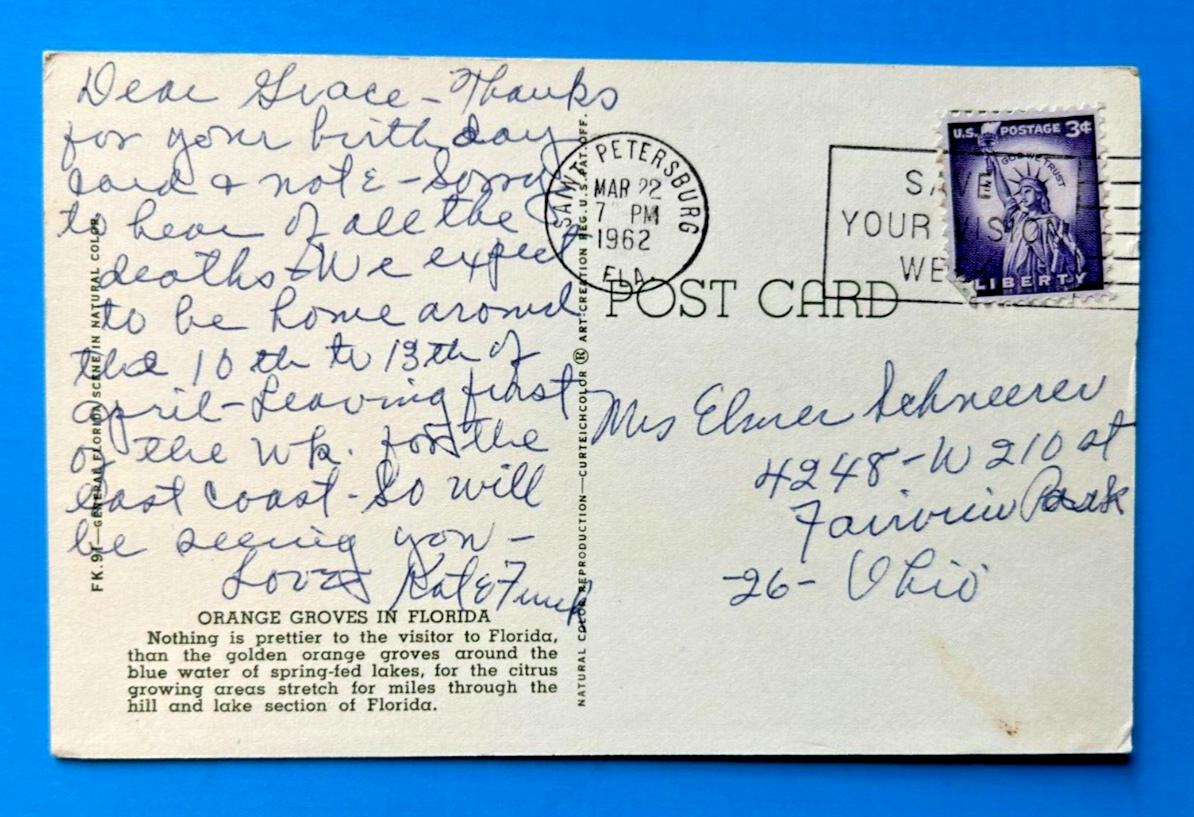 Dear Grace - Thanks
for your birthday
card & note - Sorry
to hear of all the
deaths - We expect
to be home around
the 10th to 13th of
April - Leaving first
of the wk. for the
east coast - So will
be seeing you -
Love
ORANGE GROVES IN FLORIDA
Nothing is prettier to the visitor to Florida,
than the golden orange groves around the
blue water of spring-fed lakes, for the citrus
growing areas stretch for miles through the
hill and lake section of Florida.
FK.91—GENERAL FLORIDA SCENE IN NATURAL COLOR
NATURAL COLOR REPRODUCTION—CURTEICHCOLOR ® ART-CREATION REG. U.S. PAT. OFF.
SAINT PETERSBURG
MAR 22
7 PM
1962
FLA.
SAVE
YOUR VISION
WE
U.S. POSTAGE 3¢
IN GOD WE TRUST
LIBERTY
POST CARD
Mrs Elmer Schneerer
4248 - W 210 st
Fairview Park
-26- Ohio